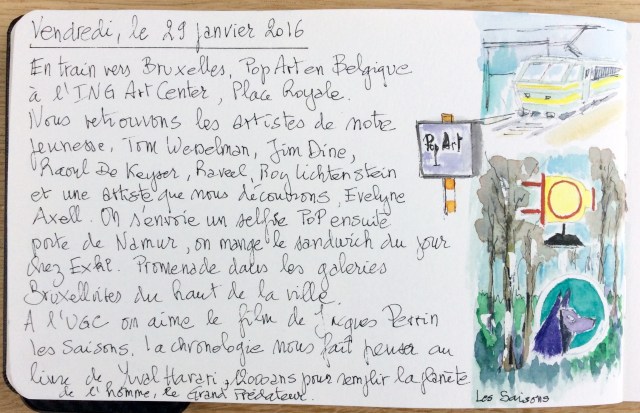 Vendredi, le 29 janvier 2016
En train vers Bruxelles, Pop Art en Belgique
à l'ING Art Center, Place Royale.
Nous retrouvons les artistes de notre
jeunesse, Tom Wesselman, Jim Dine,
Raoul De Keyser, Raveel, Roy Lichtenstein
et une artiste que nous découvrons, Evelyne
Axell. On s'envoie un selfie PoP ensuite
porte de Namur, on mange le sandwich du jour
chez Exki. Promenade dans les galeries
Bruxelloites du haut de la ville.
A l'UGC on aime le film de Jacques Perrin
les Saisons. La chronologie nous fait penser au
livre de Yuval Harari, 12000 ans pour remplir la planète
de l'homme, le Grand Prédateur.
Pop Art
Les Saisons